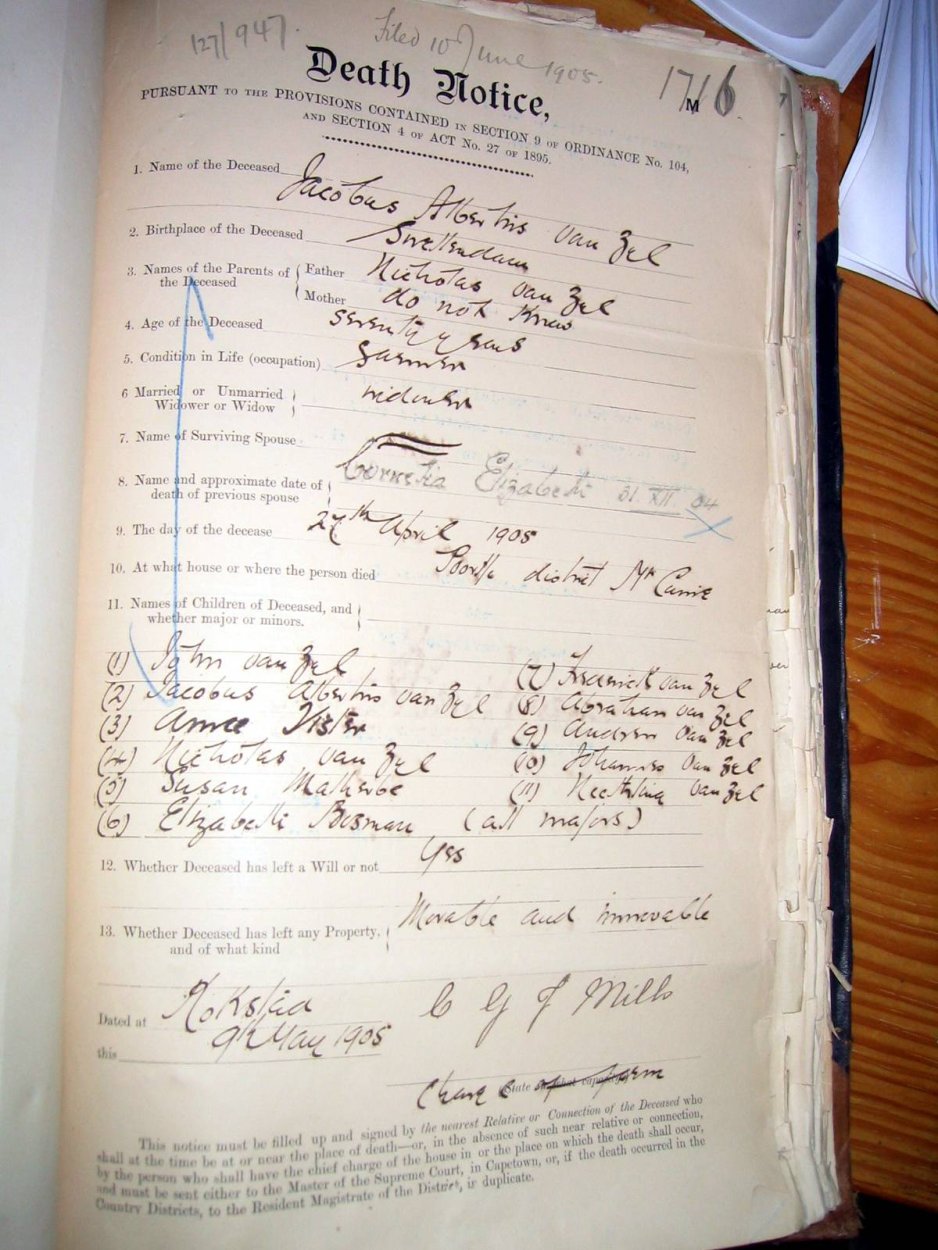 127/947.
Filed 10 June 1905.
1716
M
Death Notice,
PURSUANT TO THE PROVISIONS CONTAINED IN SECTION 9 OF ORDINANCE No. 104,
AND SECTION 4 OF ACT No. 27 OF 1895.
1. Name of the Deceased Jacobus Albertus van Zyl
2. Birthplace of the Deceased Swellendam
3. Names of the Parents of the Deceased { Father Nicholas van Zyl
Mother do not know
4. Age of the Deceased seventy years
5. Condition in Life (occupation) farmer
6 Married or Unmarried
Widower or Widow { widower
7. Name of Surviving Spouse
8. Name and approximate date of
death of previous spouse { Cornelia Elizabeth 31 XII. 04
9. The day of the decease 27th April 1905
10. At what house or where the person died district Mt Currie
11. Names of Children of Deceased, and
whether major or minors. {
(1) John van Zyl (7) Frederick van Zyl
(2) Jacobus Albertus van Zyl (8) Abraham van Zyl
(3) (9) Andrew van Zyl
(4) Nicholas van Zyl (10) Johannes van Zyl
(5) Susan Malherbe (11) van Zyl
(6) Elizabeth Bosman (all majors)
12. Whether Deceased has left a Will or not Yes
13. Whether Deceased has left any Property,
and of what kind { Movable and immovable
Dated at Kokstad
this 9th May 1905
C G F Mills
State in what capacity
This notice must be filled up and signed by the nearest Relative or Connection of the Deceased who
shall at the time be at or near the place of death—or, in the absence of such near relative or connection,
by the person who shall have the chief charge of the house in or the place on which the death shall occur,
and must be sent either to the Master of the Supreme Court, in Capetown, or, if the death occurred in the
Country Districts, to the Resident Magistrate of the District, in duplicate.